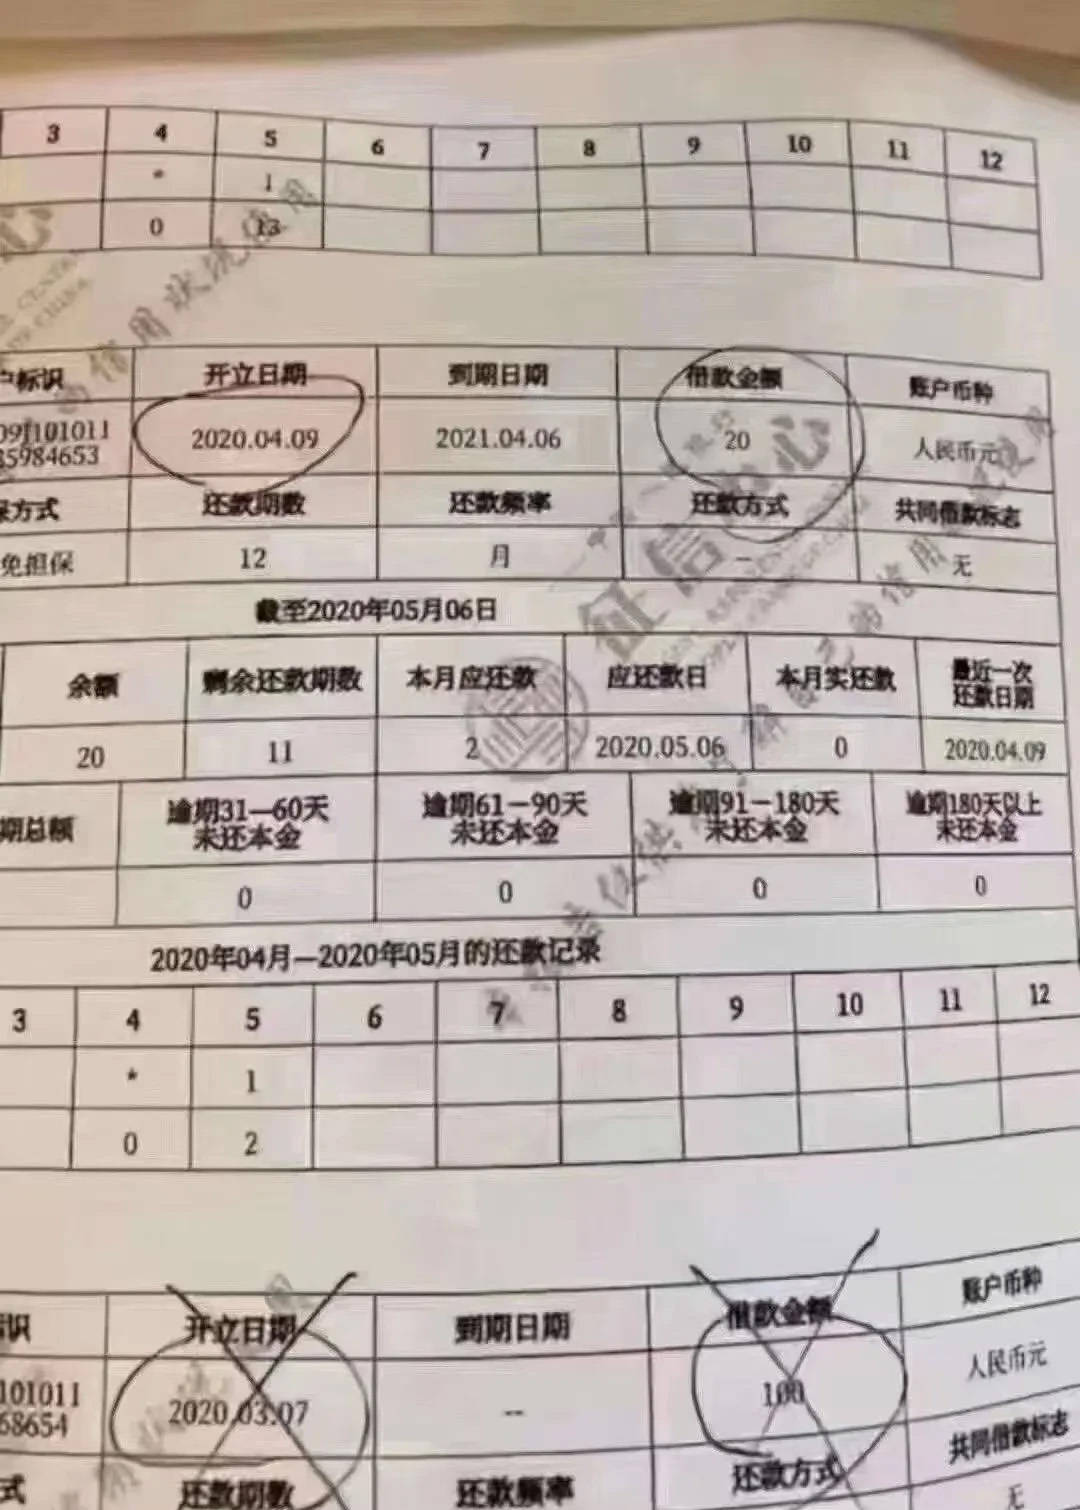 3 4 5 6 7 8 9 10 11 12
* 1
0 13
户标识 开立日期 到期日期 借款金额 账户币种
091101011 2020.04.09 2021.04.06 20 人民币元
35984653
保方式 还款期数 还款频率 还款方式 共同借款标志
免担保 12 月 -- 无
截至2020年05月06日
余额 剩余还款期数 本月应还款 应还款日 本月实还款 最近一次
还款日期
20 11 2 2020.05.06 0 2020.04.09
期总额 逾期31—60天 逾期61－90天 逾期91－180天 逾期180天以上
未还本金 未还本金 未还本金 未还本金
0 0 0 0
2020年04月—2020年05月的还款记录
3 4 5 6 7 8 9 10 11 12
* 1
0 2
识 开立日期 到期日期 借款金额 账户币种
101011 2020.03.07 -- 100 人民币元
68654
式 还款期数 还款频率 还款方式 共同借款标志
无
征信中心